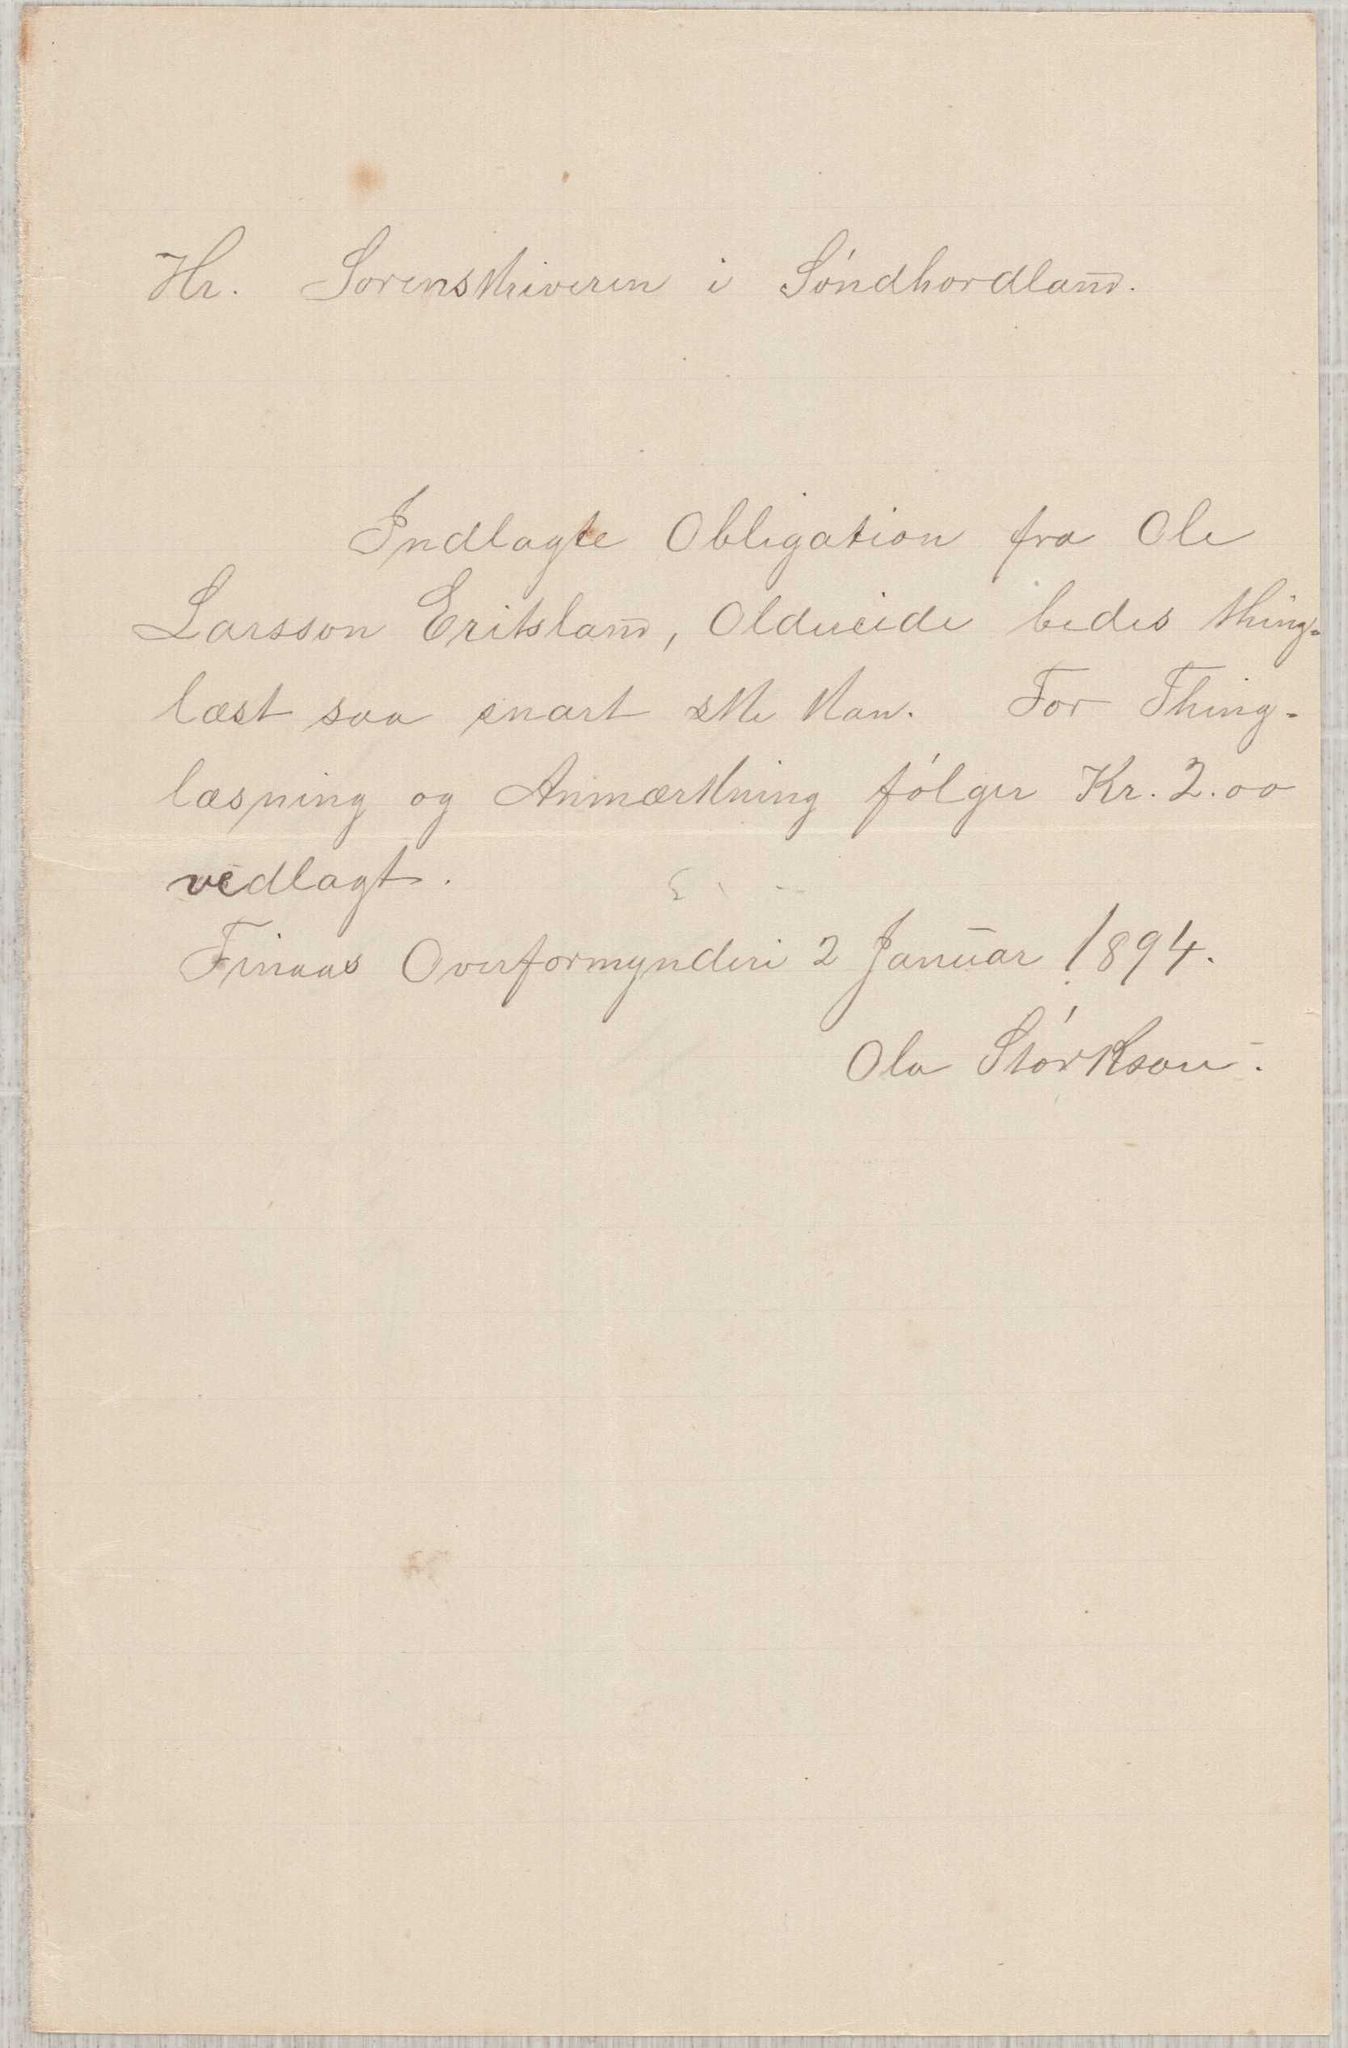 Hr. Sorenskriveren i Søndhordland.
Indlagte Obligation fra Ole
Larsson Eritsland, Oldereide bedes thing-
læst saa snart ske kan. For Thing-
læsning og Anmærkning følger Kr. 2.00
vedlagt.
Finaas Overformynderi 2 Januar 1894.
Ola Størkson.